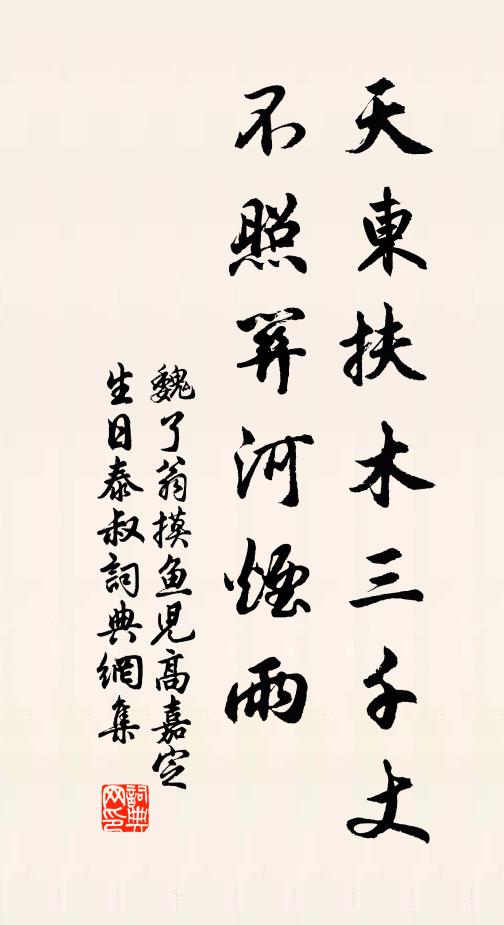 天東扶木三千丈
不照關河煙雨
魏了翁摸魚兒高嘉定
生日泰叔詞典網集
詞典网印